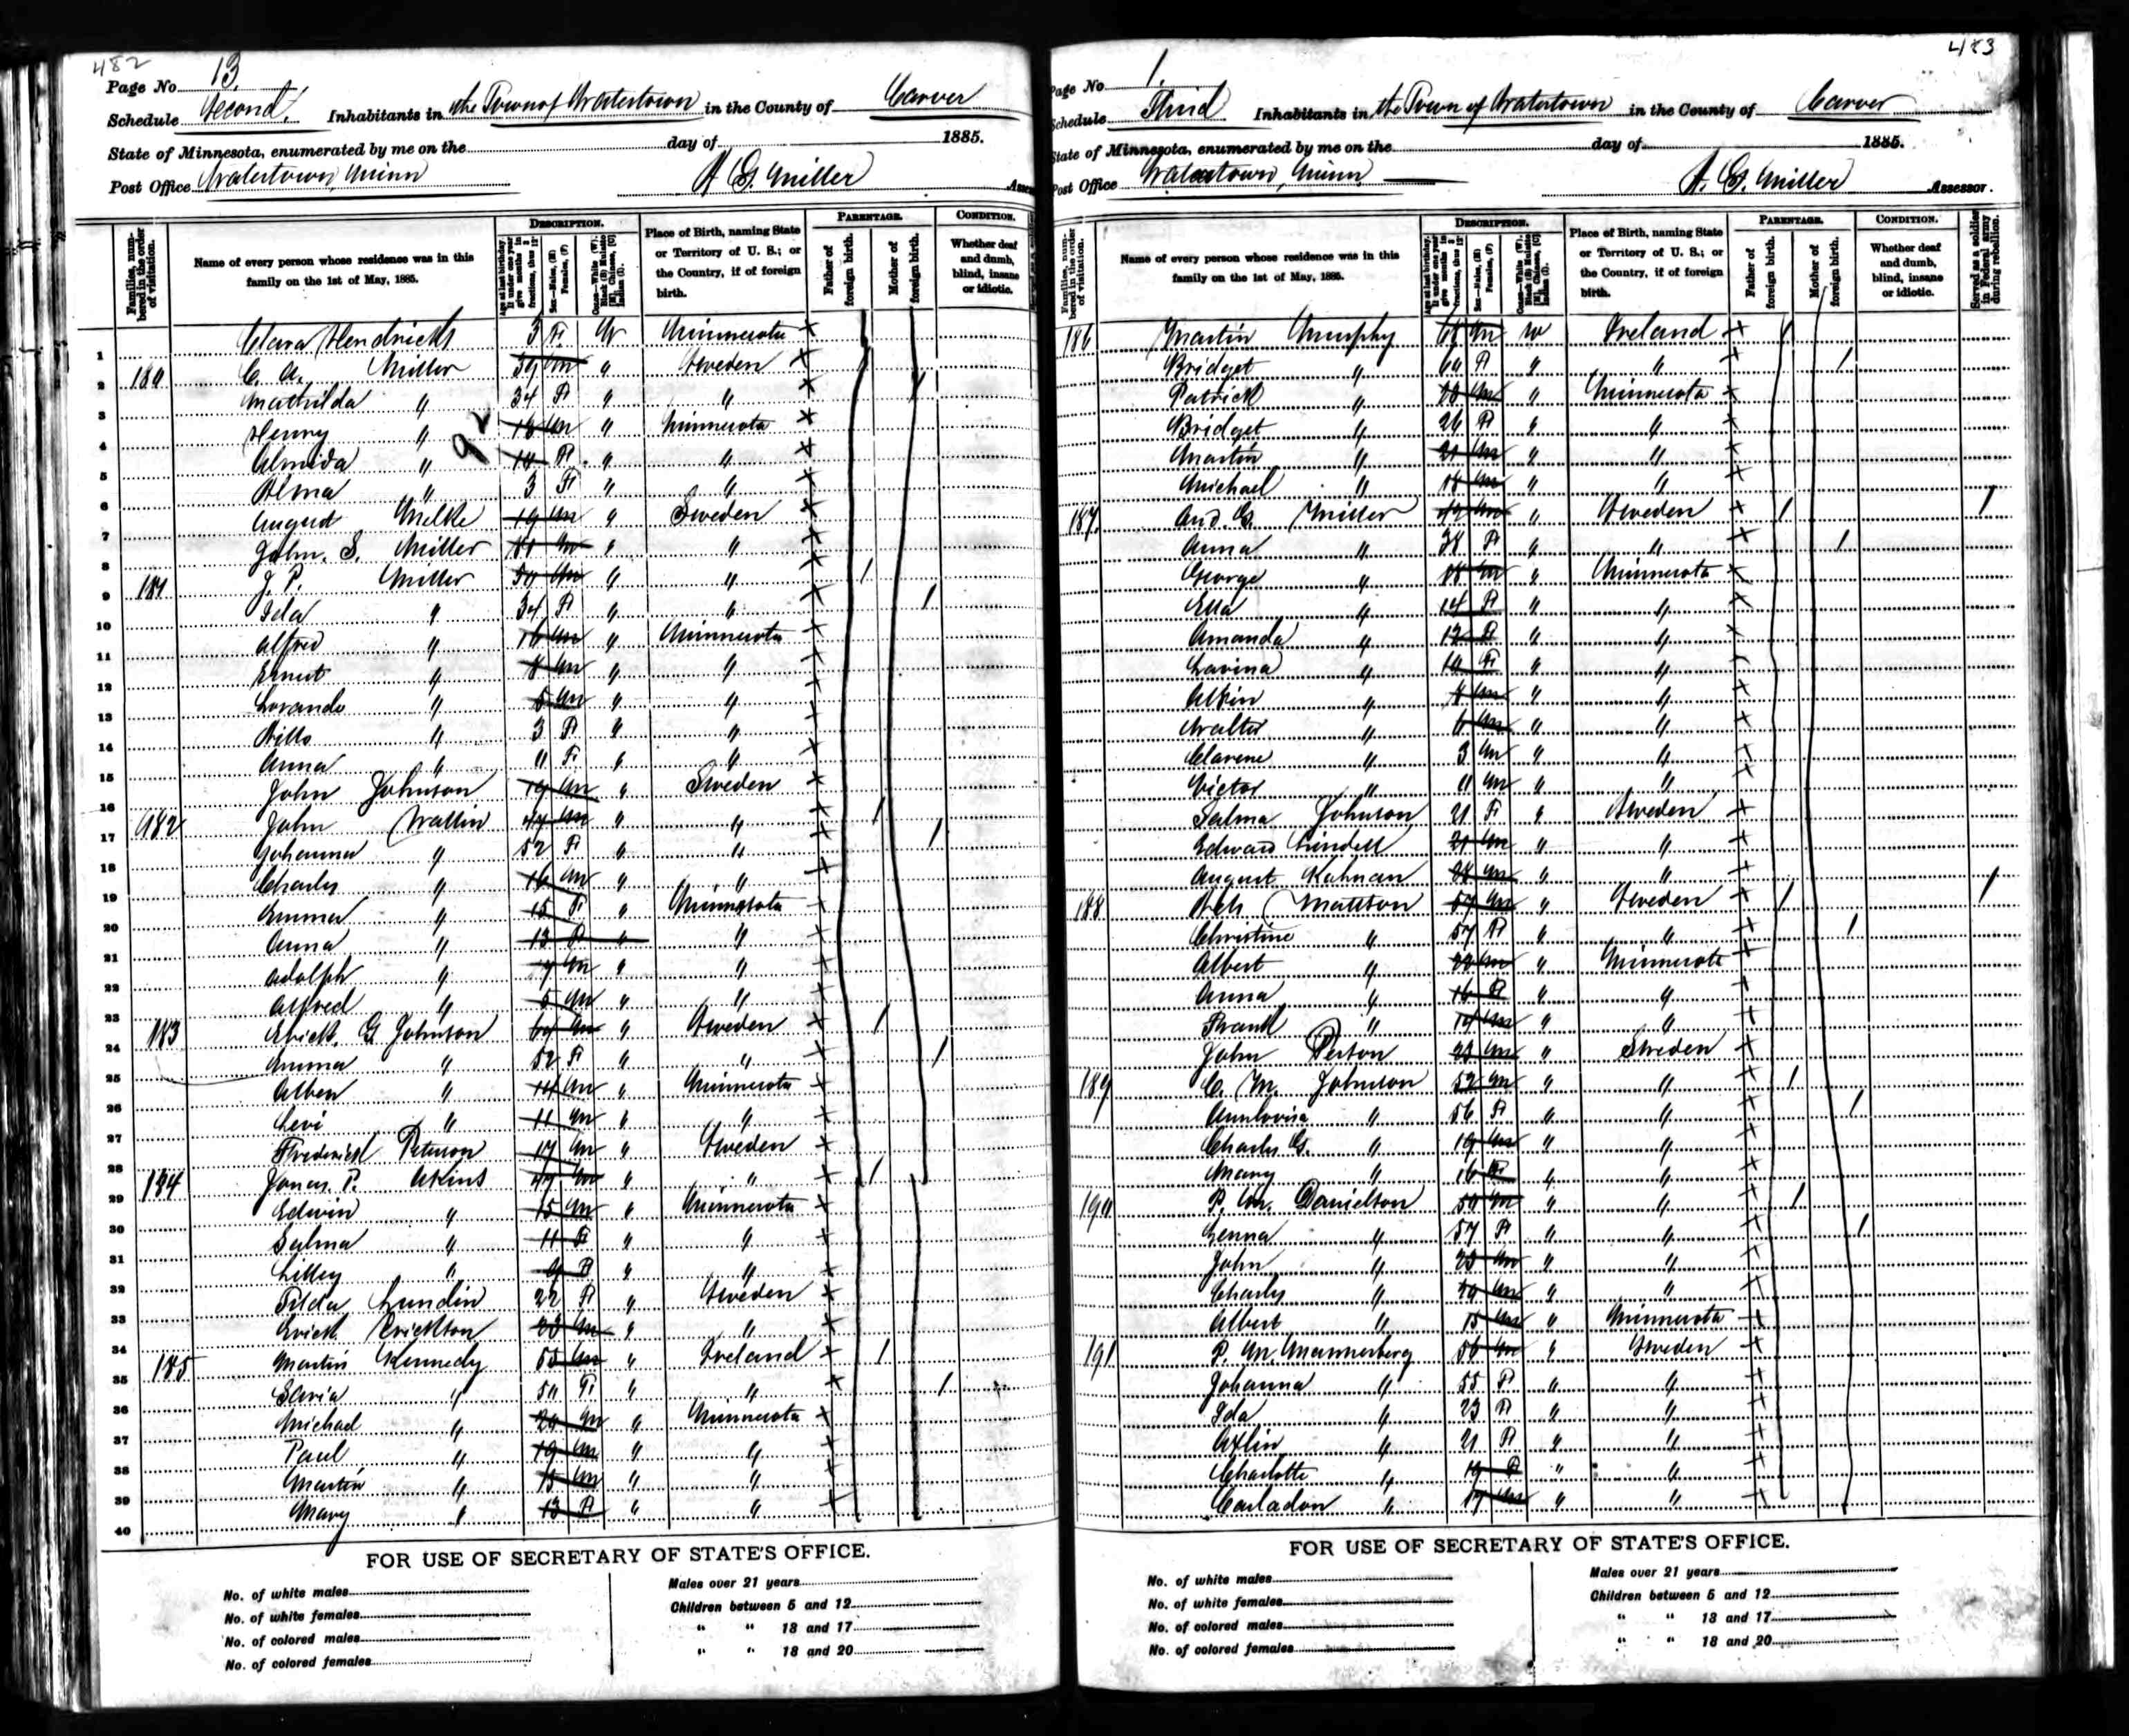 482
Page No. 13.
Schedule Second. Inhabitants in the Town of Watertown in the County of Carver
State of Minnesota, enumerated by me on the day of 1885.
Post Office Watertown Minn A. G. Miller Asses
Families, numbered in the order of visitation.
Name of every person whose residence was in this family on the 1st of May, 1885.
DESCRIPTION.
Age at last birthday. If under one year give months in fractions, thus 3/12
Sex—Males, (M) Females, (F)
Place of Birth, naming State or Territory of U. S.; or the Country, if of foreign birth.
PARENTAGE.
Father of foreign birth.
Mother of foreign birth.
CONDITION.
Whether deaf and dumb, blind, insane or idiotic.
1 Clara Hendricks 3 F W Minnesota X
2 180 C. A. Miller 39 M " Sweden X
3 Mathilda " 34 F " " X
4 Henry " M " Minnesota X
5 Almida " F " " X
6 Alma " 3 F " " X
7 August Milke 19 M " Sweden X
8 John. S. Miller M " " X
9 181 J. P. Miller M " " X 1
10 Ida " 34 F " " X 1
11 Alfred " 16 M " Minnesota X
12 Ernest " 8 M " " X
13 " 5 M " " X
14 " 3 F " " X
15 Anna " 11 F " " X
16 John Johnson 19 M " Sweden X
17 182 John Wallin M " " X 1
18 Johanna " 52 F " " X 1
19 Charles " 16 M " " X
20 Emma " 15 F " Minnesota X
21 Anna " 13 F " " X
22 Adolph " M " " X
23 Alfred " 5 M " " X
24 183 Erick. G Johnson M " Sweden X 1
25 Emma " 52 F " " X 1
26 Alben " 14 M " Minnesota X
27 Levi " 11 M " " X
28 Frederick Peterson 17 M " Sweden X
29 184 Jonas. P. Akins M " " X 1
30 Edwin " 15 M " Minnesota X
31 Selma " 11 F " " X
32 Lilley " 9 F " " X
33 Tilda Lundin 22 F " Sweden X
34 Erick Erickson 23 M " " X
35 185 Martin Kennedy 55 M " Ireland X 1
36 " 50 F " " X 1
37 Michael " 20 M " Minnesota X
38 Paul " 19 M " " X
39 Martin " 15 M " " X
40 Mary " 13 F " " X
92
FOR USE OF SECRETARY OF STATE'S OFFICE.
No. of white males
No. of white females
No. of colored males
No. of colored females
Males over 21 years
Children between 5 and 12
" " 13 and 17
" " 18 and 20
483
Page No 1.
Schedule Third Inhabitants in the Town of Watertown in the County of Carver
State of Minnesota, enumerated by me on the day of 1885.
Post Office Watertown, Minn. A. G. Miller Assessor.
Families, numbered in the order of visitation.
Name of every person whose residence was in this family on the 1st of May, 1885.
DESCRIPTION.
Age at last birthday. If under one year give months in fractions, thus 3/12
Sex—Males, (M) Females, (F)
Place of Birth, naming State or Territory of U. S.; or the Country, if of foreign birth.
PARENTAGE.
Father of foreign birth.
Mother of foreign birth.
CONDITION.
Whether deaf and dumb, blind, insane or idiotic.
Served as a soldier in Federal army during rebellion.
186 Martin Murphy M W Ireland X 1
Bridget " 60 F " " X 1
Patrick " M " Minnesota X
Bridget " 26 F " " X
Martin " 21 M " " X
Michael " 18 M " " X
187. And. G. Miller M " Sweden X 1 1
Anna " 38 F " " X 1
George " 18 M " Minnesota X
Ella " 14 F " " X
Amanda " 12 F " " X
Lavina " 10 F " " X
" 8 M " " X
Walter " 6 M " " X
Clarence " 3 M " " X
Victor " 11 M " " X
Selma Johnson 21 F " Sweden X
Edward Lindell 21 M " " X
August Kahnan 28 M " " X
188 Mattson 57 M " Sweden X 1 1
Christine " 57 F " " X 1
Albert " 22 M " Minnesota X
Anna " 16 F " " X
Frank " 14 M " " X
John Person 23 M " Sweden X
189 C. M. Johnson 52 M " " X 1
" 56 F " " X 1
Charles G. " 19 M " " X
Mary " 16 F " " X
190 P. M. Danielson M " " X 1
Lenna " 57 F " " X 1
John " 23 M " " X
Charles " M " " X
Albert " 15 M " Minnesota X
191 P. M. Mannerberg 56 M " Sweden X
Johanna " 55 F " " X
Ida " 23 F " " X
" 21 F " " X
Charlotte " 19 F " " X
" 17 M " " X
FOR USE OF SECRETARY OF STATE'S OFFICE.
No. of white males
No. of white females
No. of colored males
No. of colored females
Males over 21 years
Children between 5 and 12
" " 13 and 17
" " 18 and 20